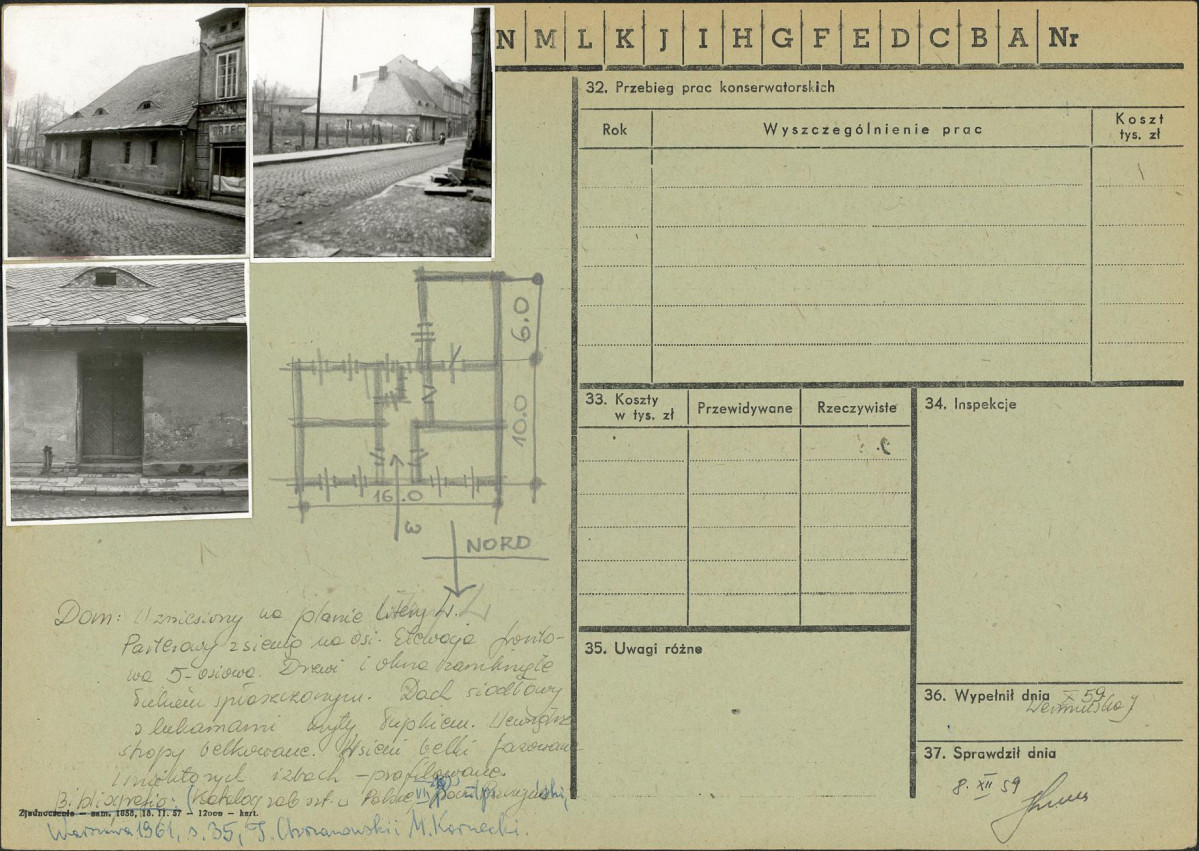 N M L K J I H G F E D C B A Nr
32. Przebieg prac konserwatorskich
Rok
Wyszczególnienie prac
Koszt tys. zł
6.0
10.0
16.0
NORD
33. Koszty w tys. zł
Przewidywane
Rzeczywiste
34. Inspekcje
35. Uwagi różne
36. Wypełnił dnia X 59
37. Sprawdził dnia
8. XII 59
Dom: Wzniesiony na planie litery L.
Parterowy z sienią na osi. Elewacja fronto-
wa 5-osiowa. Drzwi i okna zamknięte
łukiem spłaszczonym. Dach siodłowy
z lukarnami kryty łupkiem. Wewnątrz
stropy belkowane. W sieni belki fazowane
w niektórych izbach - profilowane.
Bibliografia: Katalog zab. szt. w Polsce VII
Zjednoczenie — zam. 1858, 18. 11. 57 — 12000 — kart.
Warszawa 1961, s. 35, T. Chrzanowski i M. Kornecki.